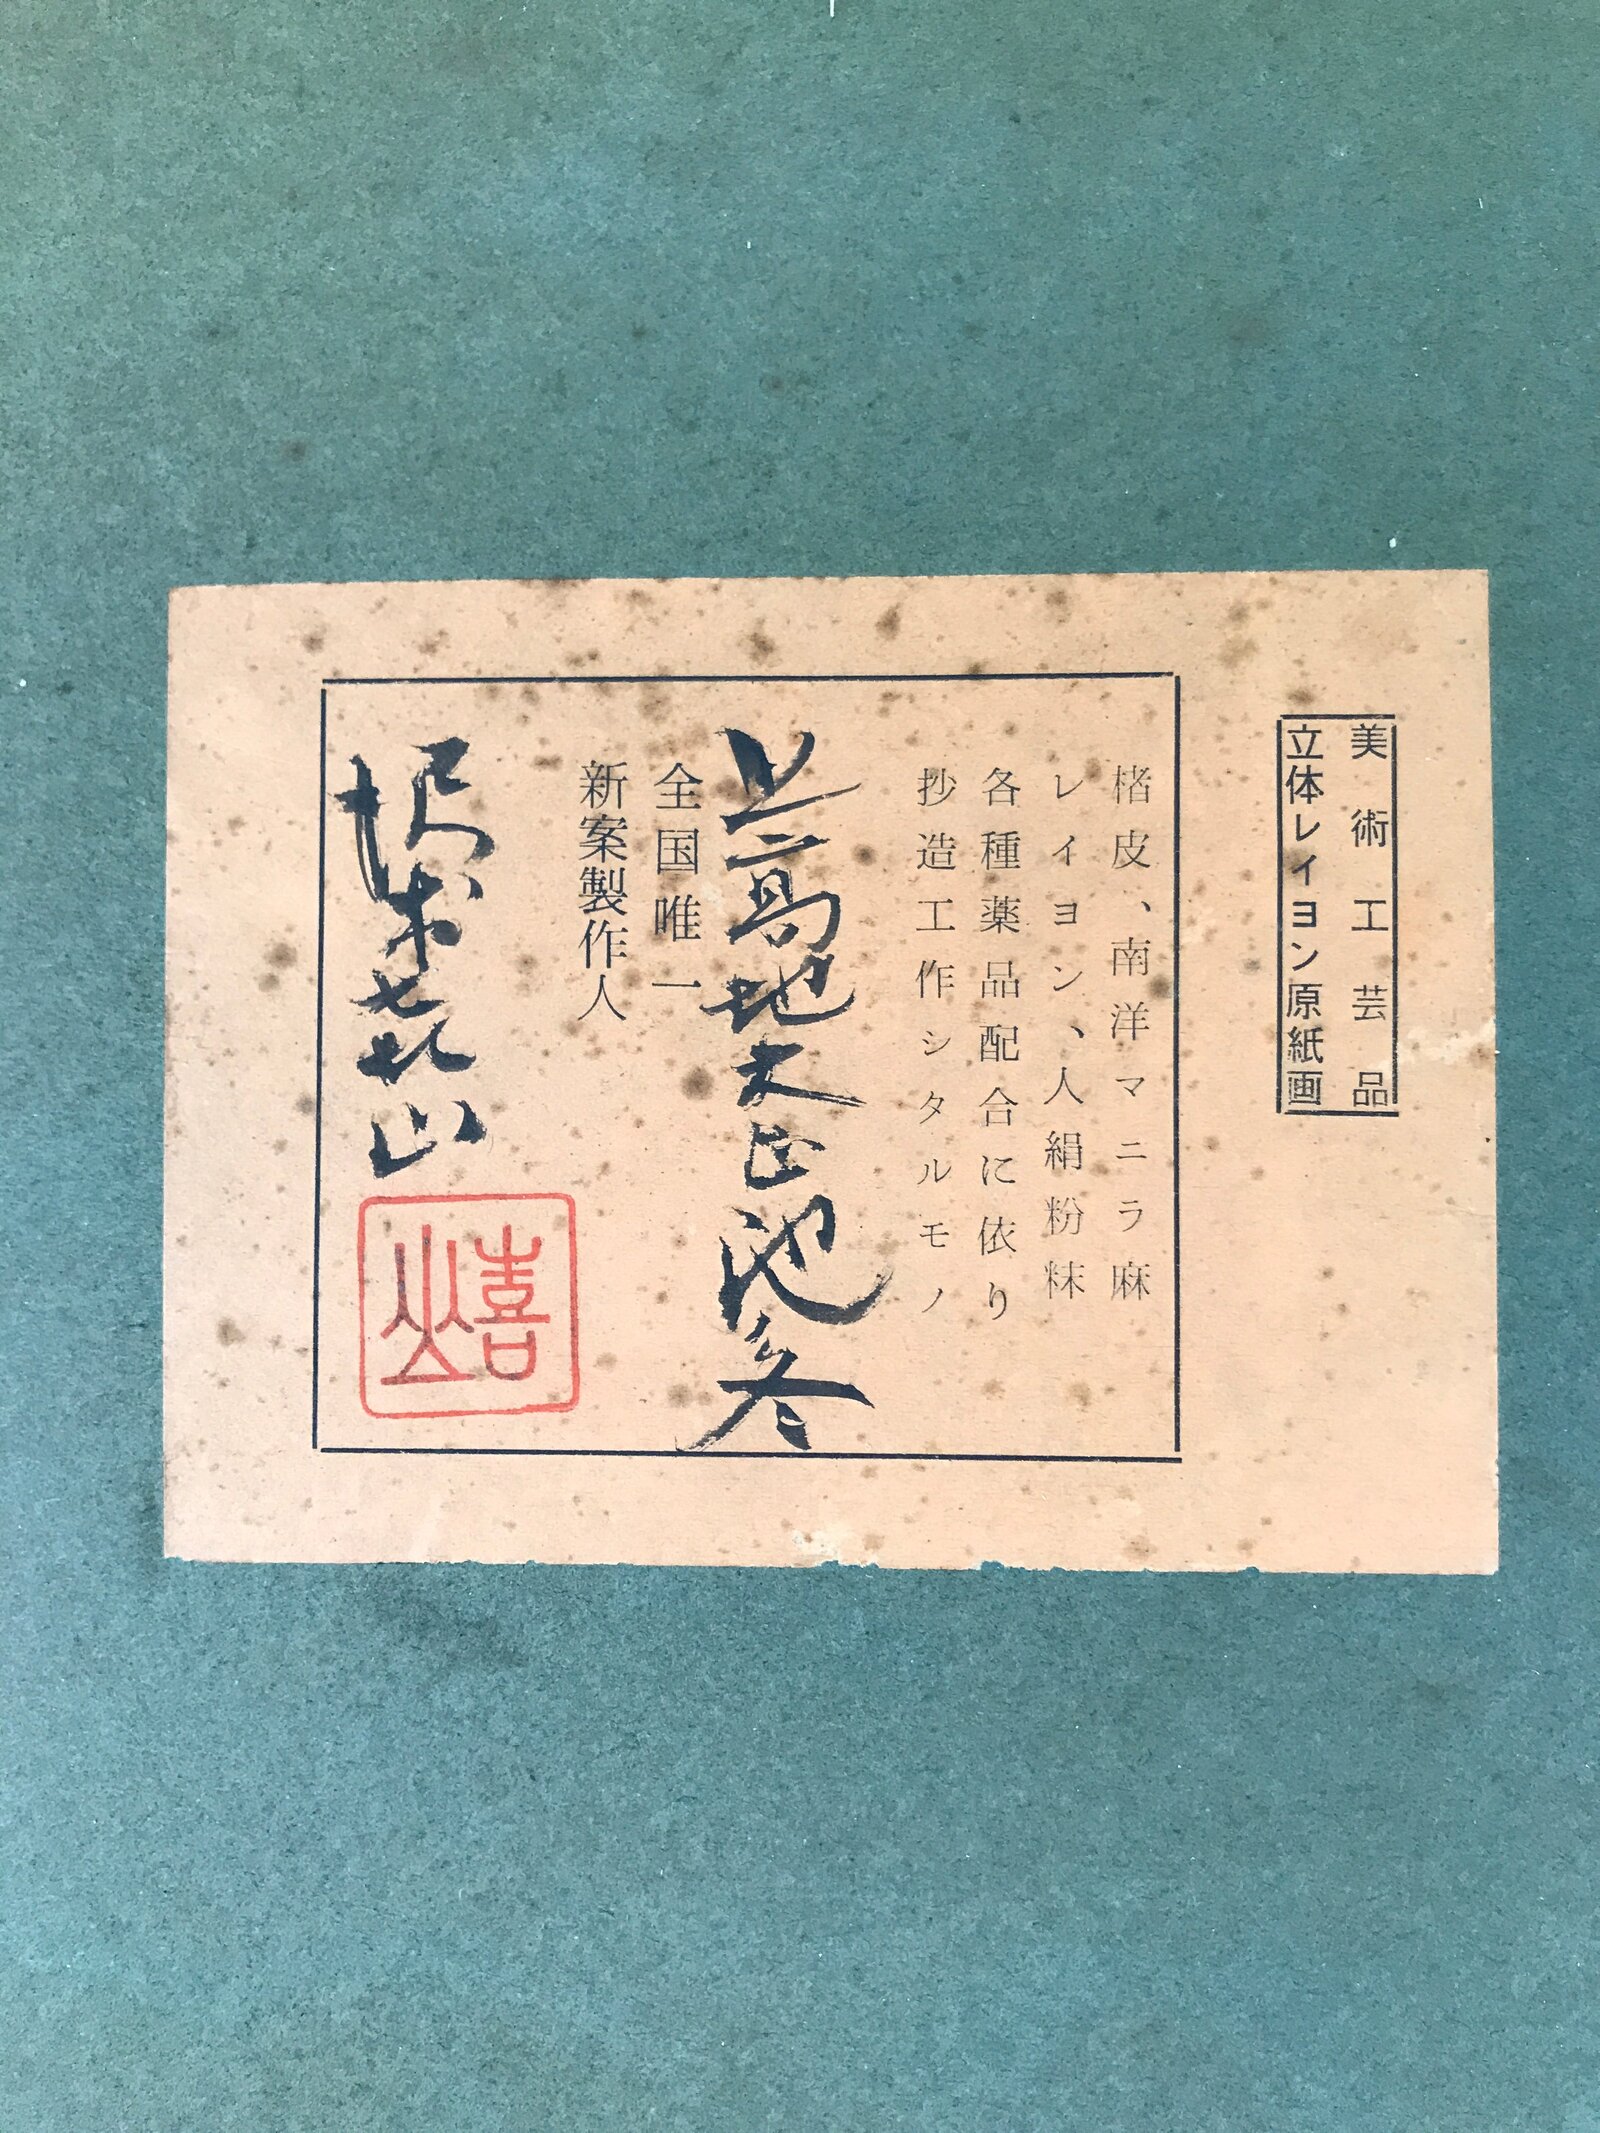 美術工芸品
立体レイヨン原紙画
楮皮、南洋マニラ麻
レイヨン、人絹粉粖
各種薬品配合に依り
抄造工作シタルモノ
上高地大正池冬
全国唯一
新案製作人
堀木㐂山
喜山